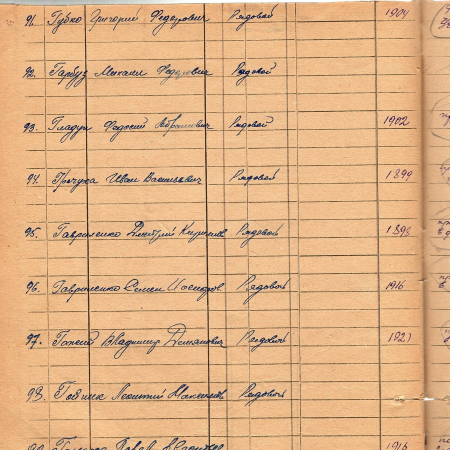 91. Губко Григорий Федорович Рядовой 1904
92. Гарбуз Михаил Федорович Рядовой
93. Гладун Федосий Абрамович Рядовой 1902
94. Гречуха Иван Васильевич Рядовой 1899
95. Гавриленко Дмитрий Кириллов Рядовой 1898
96. Гавриленко Семен Иосифов Рядовой 1916
97. Владимир Демянович Рядовой 1923
98. Леонтий Максимов Рядовой
99. Павел 1916